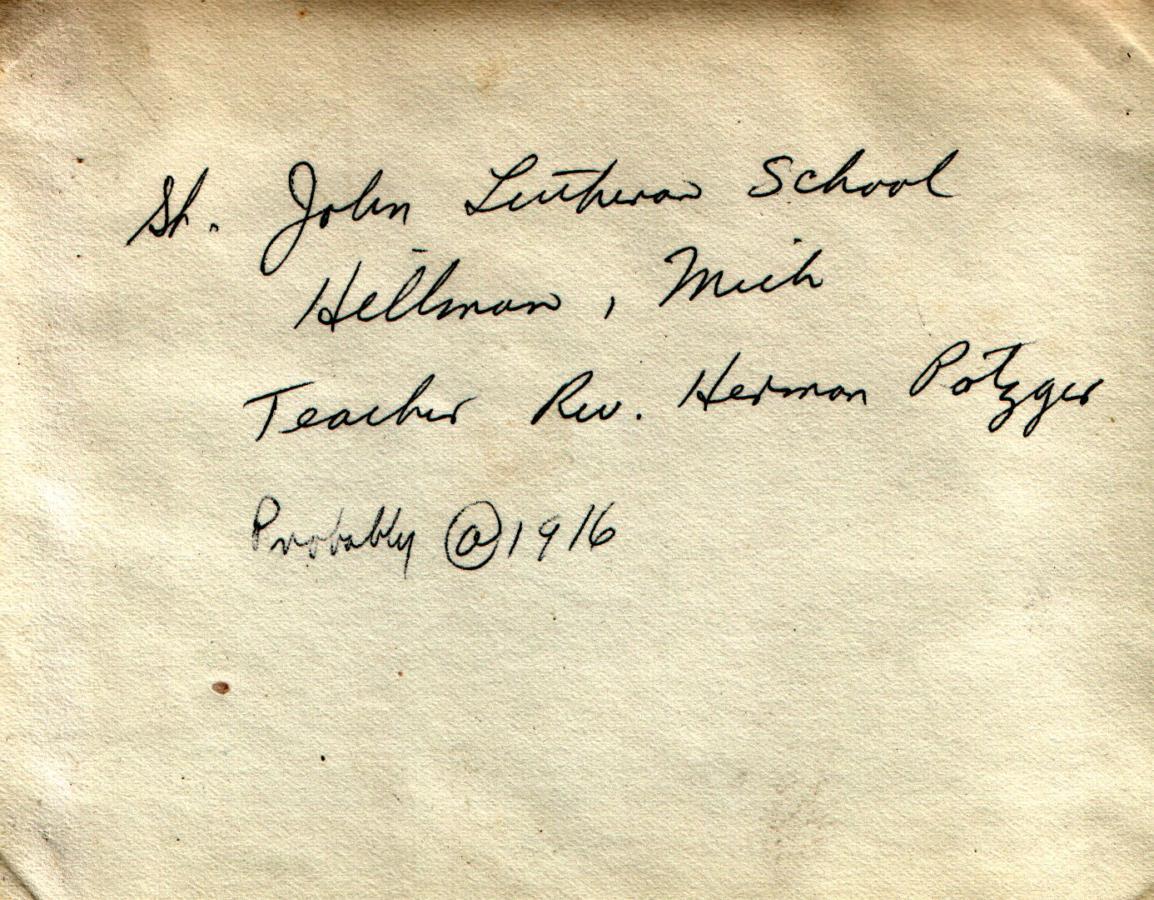 St. John Lutheran School
Hillman, Mich
Teacher Rev. Herman Potzger
Probably @1916